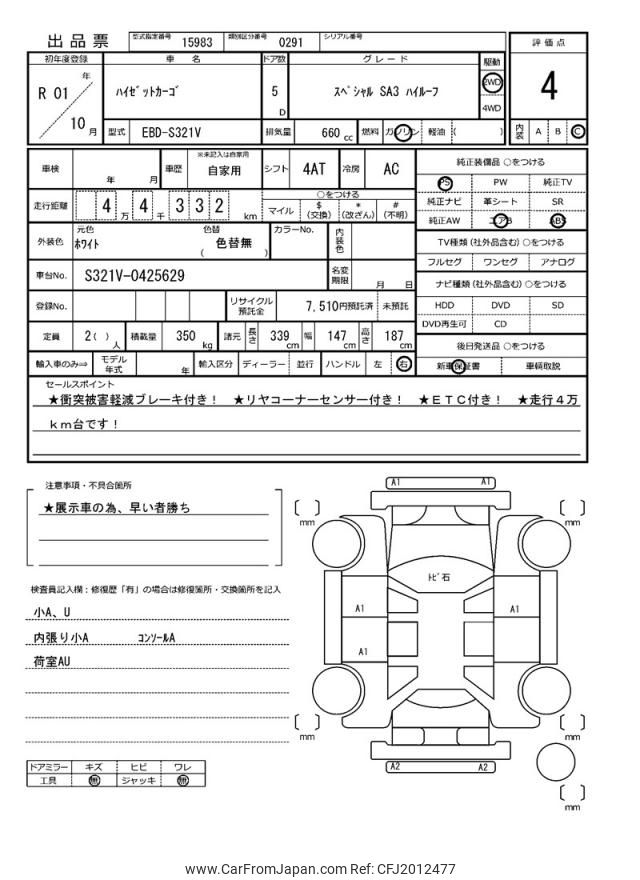 出品票 型式指定番号 15983 類別区分番号 0291 シリアル番号
初年度登録 車名 ドア数 グレード 駆動 評価点
R 01 年 10 月 ﾊｲｾﾞｯﾄｶｰｺﾞ 5 D ｽﾍﾟｼｬﾙ SA3 ﾊｲﾙｰﾌ 2WD 4WD 4
型式 EBD-S321V 排気量 660 cc 燃料 ガソリン 軽油 ( ) 内装 A B C
車検 年 月 車歴 ※未記入は自家用 自家用 シフト 4AT 冷房 AC
純正装備品 ○をつける
PS PW 純正TV
純正ナビ 革シート SR
純正AW エアB ABS
走行距離 4 万 4 千 3 3 2 km
○をつける
マイル $ (交換) * (改ざん) # (不明)
外装色 元色 ﾎﾜｲﾄ 色替 色替無 ( ) カラーNo. 内装色
TV種類 (社外品含む) ○をつける
フルセグ ワンセグ アナログ
車台No. S321V-0425629 名変期限 月 日
ナビ種類 (社外品含む) ○をつける
HDD DVD SD
DVD再生可 CD
登録No. リサイクル預託金 7,510円預託済 未預託
定員 2( ) 人 積載量 350 kg 諸元 長さ 339 cm 幅 147 cm 高さ 187 cm
後日発送品 ○をつける
新車保証書 車輌取説
輸入車のみ⇒ モデル年式 年 輸入区分 ディーラー 並行 ハンドル 左 右
セールスポイント
★衝突被害軽減ブレーキ付き！ ★リヤコーナーセンサー付き！ ★ＥＴＣ付き！ ★走行４万
ｋｍ台です！
注意事項・不具合箇所
★展示車の為、早い者勝ち
検査員記入欄：修復歴「有」の場合は修復箇所・交換箇所を記入
小A、U
内張り小A ｺﾝｿｰﾙA
荷室AU
ドアミラー キズ ヒビ ワレ
工具 無 ジャッキ 無
A1 A1
mm mm
ﾄﾋﾞ石
A1 A1
A1
mm mm
A2 A2
mm
www.CarFromJapan.com Ref: CFJ2012477